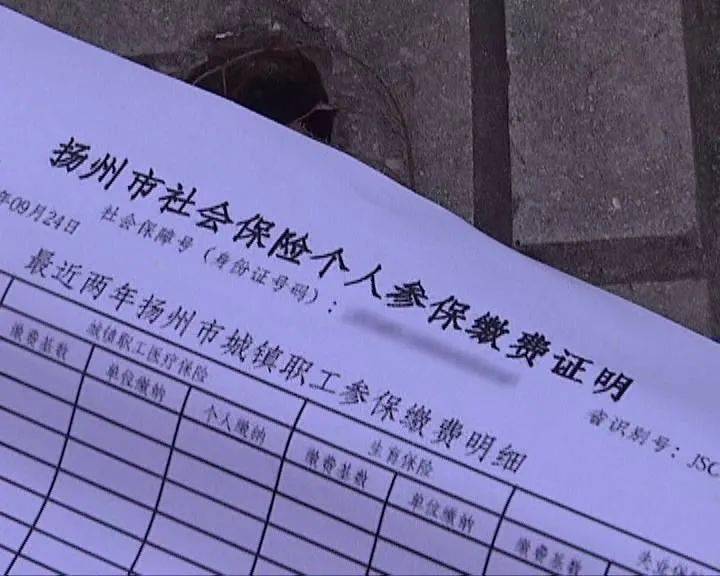 扬州市社会保险个人参保缴费证明
年09月24日 社会保障号（身份证号码）： 省识别号：JSC
最近两年扬州市城镇职工参保缴费明细
城镇职工医疗保险 生育保险 失业保险
缴费基数 单位缴纳 个人缴纳 缴费基数 单位缴纳 缴费基数